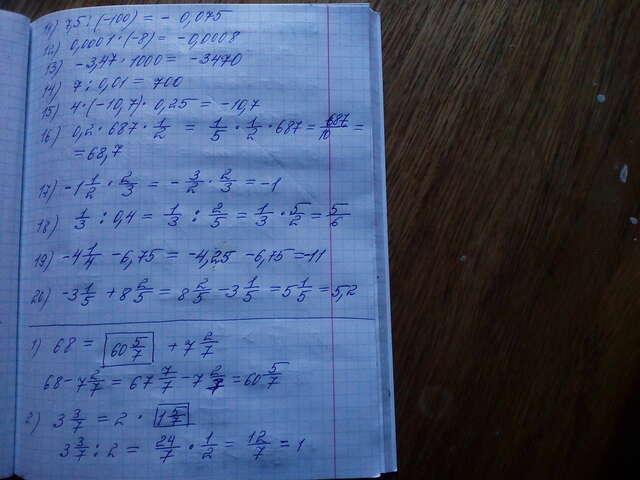 11) 7,5 : (-100) = - 0,075
12) 0,0001 · (-8) = -0,0008
13) -3,47 · 1000 = -3470
14) 7 : 0,01 = 700
15) 4 · (-10,7) · 0,25 = -10,7
16) 0,2 · 687 · 1/2 = 1/5 · 1/2 · 687 = 687/10 =
= 68,7
17) -1 1/2 · 2/3 = - 3/2 · 2/3 = -1
18) 1/3 : 0,4 = 1/3 : 2/5 = 1/3 · 5/2 = 5/6
19) -4 1/4 - 6,75 = -4,25 - 6,75 = -11
20) -3 1/5 + 8 2/5 = 8 2/5 - 3 1/5 = 5 1/5 = 5,2
1) 68 = 60 5/7 + 7 2/7
68 - 7 2/7 = 67 7/7 - 7 2/7 = 60 5/7
2) 3 3/7 = 2 · 1 5/7
3 3/7 : 2 = 24/7 · 1/2 = 12/7 = 1